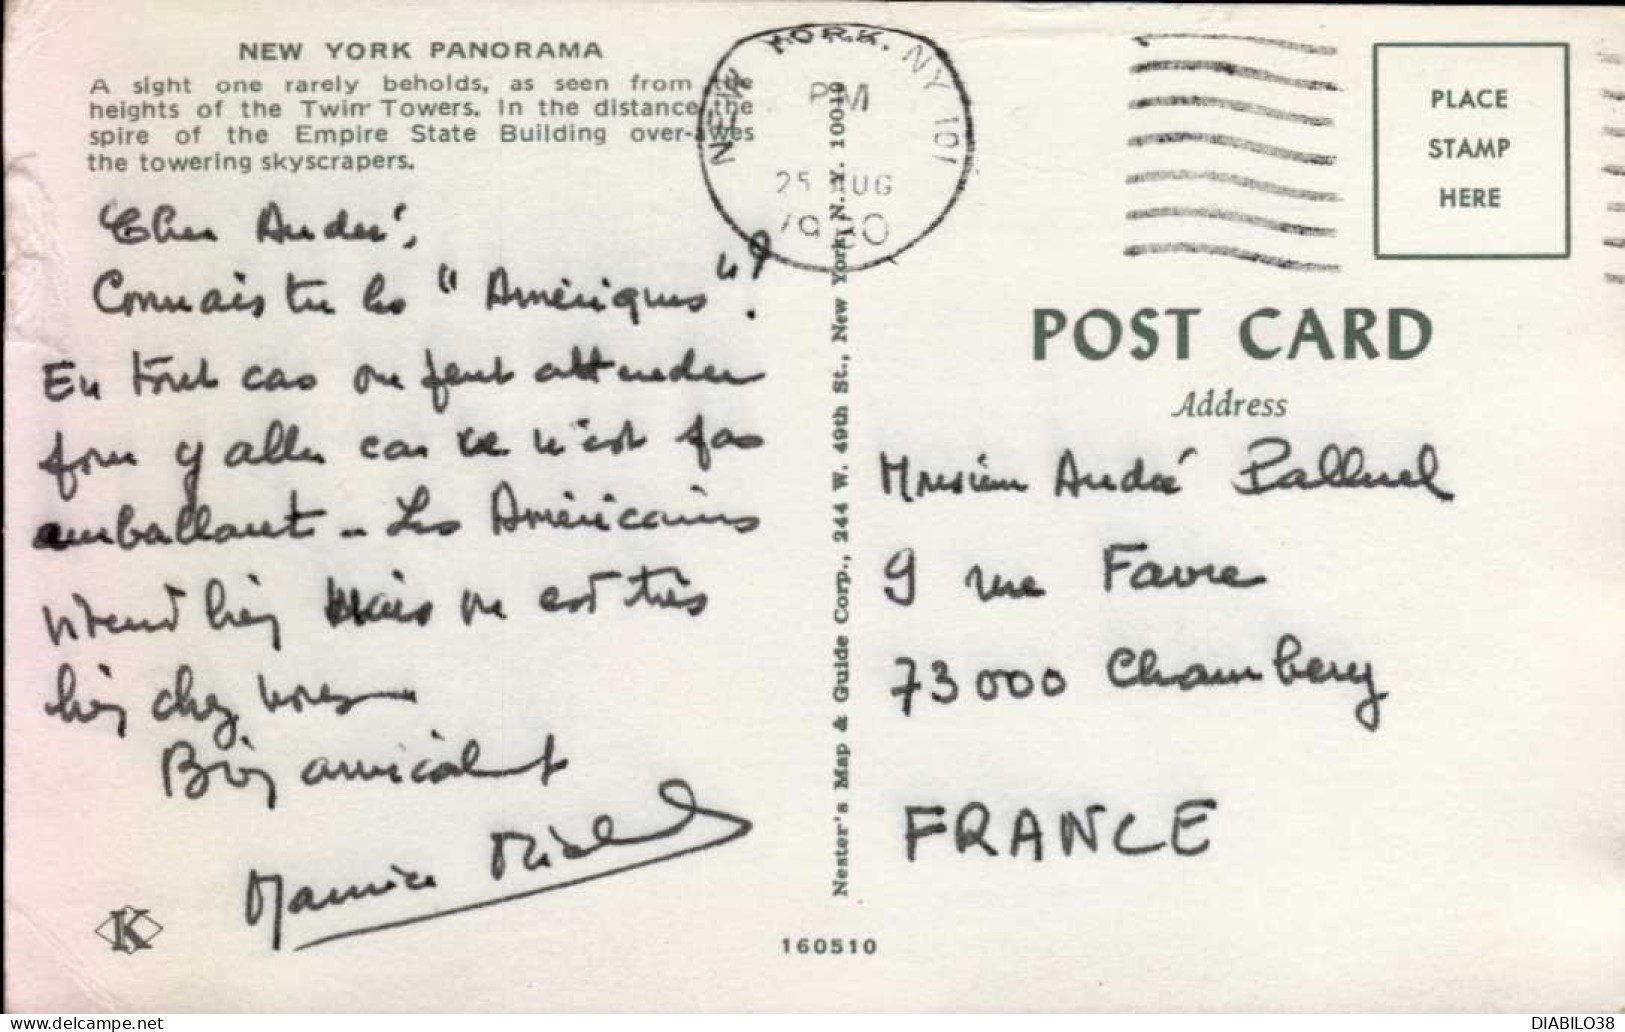 NEW YORK PANORAMA
A sight one rarely beholds, as seen from the
heights of the Twin Towers. In the distance the
spire of the Empire State Building over-awes
the towering skyscrapers.
Cher André,
Connais tu les "Amériques"?
En tout cas on peut attendre
pour y aller car ce n'est pas
emballant - Les Américains
bien mais on est très
bien chez nous
Bien amicalt
Maurice
K
NEW YORK, NY 101
PM
25 AUG
1980
Nester's Map & Guide Corp., 244 W. 49th St., New York, N. Y. 10019
160510
PLACE
STAMP
HERE
POST CARD
Address
Monsieur André Palluel
9 rue Favre
73000 Chambery
FRANCE
DIABILO38